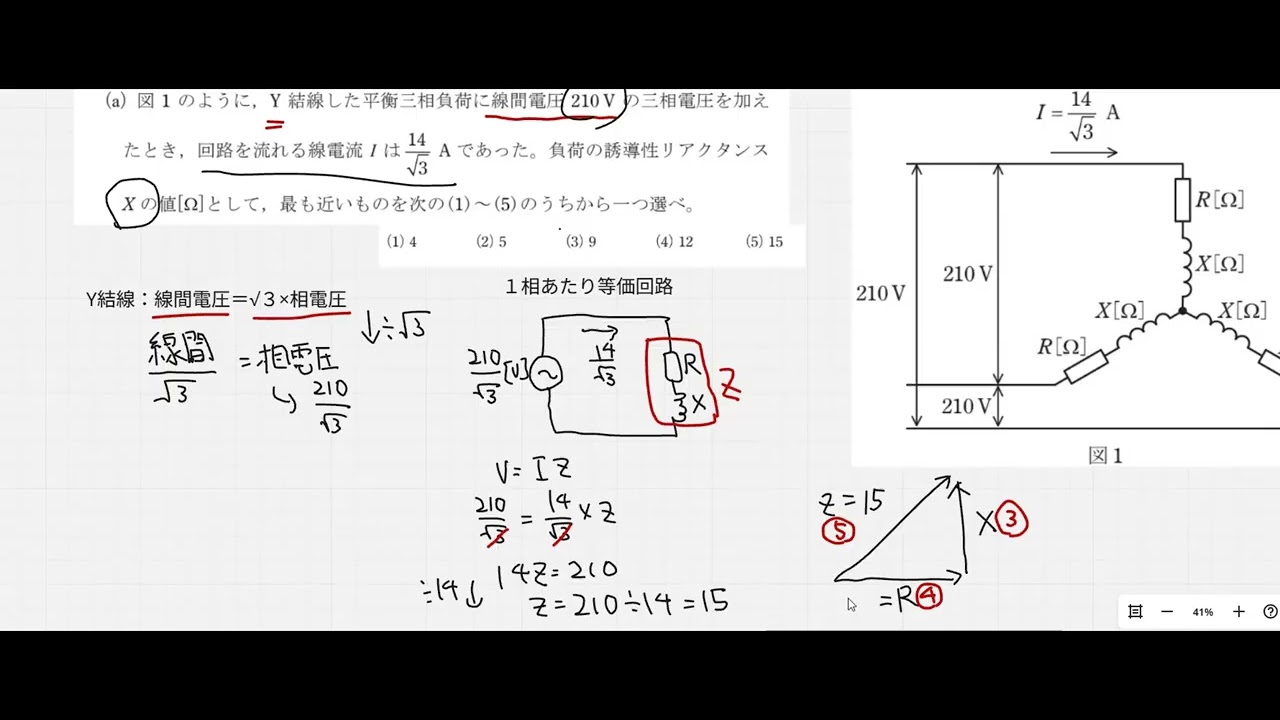 (a) 図1のように，Y結線した平衡三相負荷に線間電圧 210 V の三相電圧を加え
たとき，回路を流れる線電流 I は 14/√3 A であった。負荷の誘導性リアクタンス
X の値[Ω]として，最も近いものを次の(1)～(5)のうちから一つ選べ。
(1) 4 (2) 5 (3) 9 (4) 12 (5) 15
Y結線：線間電圧＝√３×相電圧
↓÷√3
線間/√3 = 相電圧
↳ 210/√3
１相あたり等価回路
210/√3 [V]
14/√3
R
X
Z
V = I Z
210/√3 = 14/√3 × Z
14Z = 210
÷14↓
Z = 210 ÷ 14 = 15
I = 14/√3 A
R[Ω]
X[Ω]
210 V
210 V
X[Ω] X[Ω]
R[Ω]
210 V
図1
Z = 15
⑤
X ③
= R ④
41%